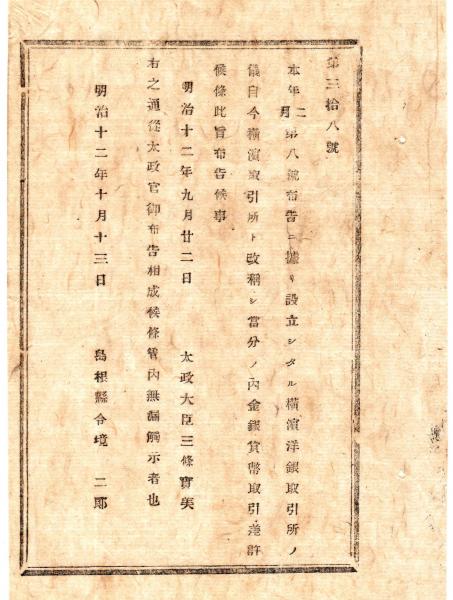 第三拾八號
本年二月第八號布告ニ據リ設立シタル橫濱洋銀取引所ノ
儀自今橫濱取引所ト改稱シ當分ノ內金銀貨幣取引差許
候條此旨布告候事
明治十二年九月廿二日　太政大臣三條實美
右之通從太政官御布告相成候條管內無漏觸示者也
明治十二年十月十三日　島根縣令境　二郎